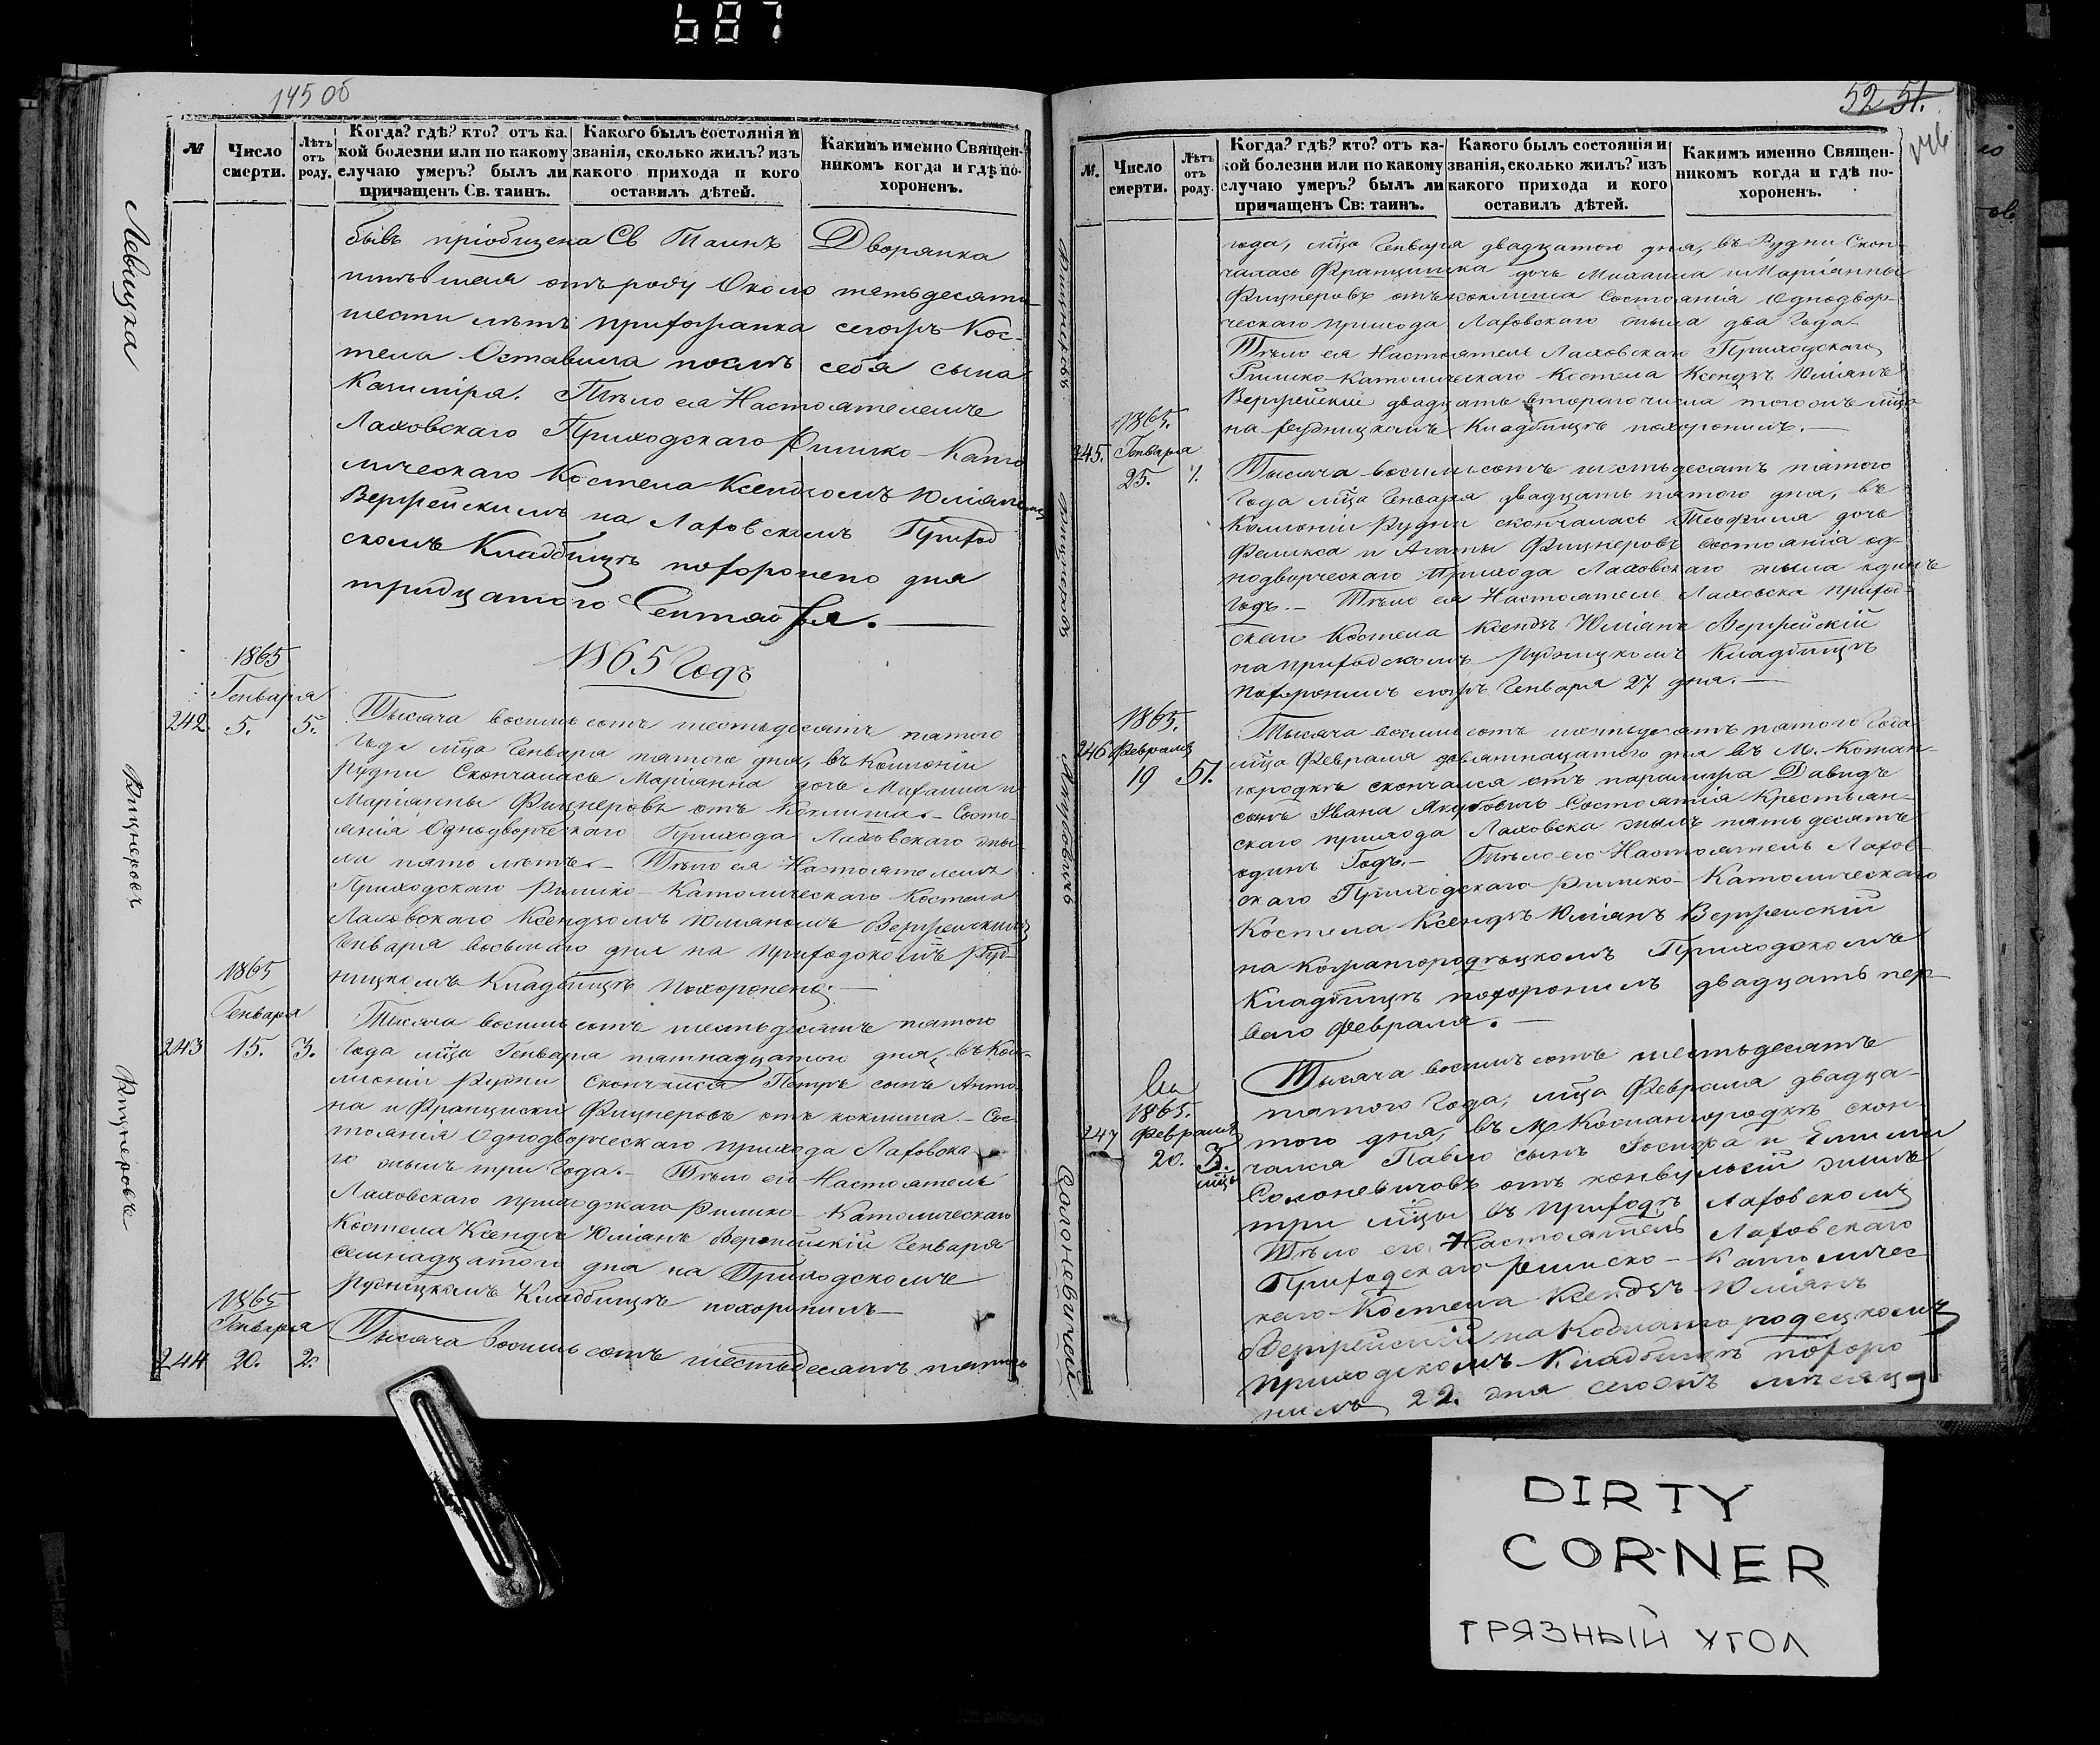 687
145 об
№
Число смерти.
Лѣтъ отъ роду.
Когда? гдѣ? кто? отъ ка-
кой болезни или по какому
случаю умеръ? былъ ли
причащенъ Св. таинъ.
Какого былъ состоянія и
званія, сколько жилъ? изъ
какого прихода и кого
оставилъ дѣтей.
Какимъ именно Священ-
никомъ когда и гдѣ по-
хороненъ.
Левицка
бывъ пріобщена Св Таинъ Дворянка
имѣвшая отъ роду Около шетьдесятъ
шести лѣтъ прихожанка сегожъ Кос-
тела Оставила послѣ себя сына
Казиміра. Тѣло ея Настоятелемъ
Лаховскаго Приходскаго Римско-Като
лическаго Костела Ксендзомъ Юліяномъ
на Лаховскомъ Приход
скомъ Кладбищѣ похоронено дня
тридцатого Сентября.
1865 Годъ
1865
Генваря
242. 5. 5.
Фицнеровъ
Тысяча восимь сотъ шестьдесятъ пятого
Года мца Генваря пятого дня, въ Колоніи
Рудни Скончалась Маріанна дочь Михаила и
Маріанны Фицнеровъ отъ Коклюша. Состо-
янія Однодворческаго Прихода Лаховскаго жы-
ла пять лѣтъ. Тѣло ея Настоятелемъ
Приходскаго Римско-Католическаго Костела
Лаховскаго Ксендзомъ Юліяномъ
Генваря восьмаго дня на Приходскомъ Руд-
ницкомъ Кладбищѣ похоронено.
1865
Генваря
243 15. 3.
Фицнеровъ
Тысяча восимь сотъ шестьдесятъ пятого
Года мца Генваря пятнадцатого дня, въ Ко-
лоніи Рудни Скончался Петръ сынъ Анто
на и Франциски Фицнеровъ отъ коклюша. Сос
тоянія Однодворческаго прихода Лаховска
го жылъ три Года. Тѣло его Настоятель
Лаховскаго приходскаго Римско-Католическаго
Костела Ксендзъ Юліянъ Генваря
семнадцатого дня на Приходскомъ
Рудницкомъ Кладбищѣ похоронилъ
1865
Генваря
244 20. 2.
Тысяча Восимь сотъ шестьдесятъ пятого
52 51.
146
№.
Число смерти.
Лѣтъ отъ роду.
Когда? гдѣ? кто? отъ ка-
кой болезни или по какому
случаю умеръ? былъ ли
причащенъ Св: таинъ.
Какого былъ состоянія и
званія, сколько жилъ? изъ
какого прихода и кого
оставилъ дѣтей.
Какимъ именно Священ-
никомъ когда и гдѣ по-
хороненъ.
Фицнеровъ
года, мца Генваря двадцатого дня, въ Рудни Скон-
чалась Францишка дочь Михаила и Маріанны
Фицнеровъ отъ коклюша Состоянія Однодвор-
ческаго прихода Лаховскаго жыла два Года
Тѣло ея Настоятель Лаховскаго Приходскаго
Римско-Католическаго Костела Ксендзъ Юліянъ
двадцать второго числа тогожъ мца
на Рудницкомъ Кладбищѣ похоронилъ.
1865.
Генваря
245. 25. 1.
Фицнеровъ
Тысяча восимь сотъ шестьдесятъ пятого
Года мца Генваря двадцать пятого дня, въ
Колоніи Рудни скончалась Теофиля дочь
Феликса и Агаты Фицнеровъ состоянія од-
нодворческаго Прихода Лаховскаго жыла единъ
Годъ. Тѣло ея Настоятель Лаховска приход
скаго Костела Ксендзъ Юліянъ
на приходскомъ Рудницкомъ Кладбищѣ
похоронилъ сегожъ Генваря 27 дня.
1865.
246 Февраля
19 51.
Якубовичъ
Тысяча восимь сотъ шестьдесятъ пятого Года
мца Февраля девятнадцатого дня въ М. Кожан-
городкѣ скончался отъ паралижа Давидъ
сынъ Ивана Якубовичъ Состоянія Крестьян-
скаго прихода Лаховска жылъ пятьдесятъ
одинъ Годъ. Тѣло его Настоятель Лахов-
скаго Приходскаго Римско-Католическаго
Костела Ксендзъ Юліянъ
на Приходскомъ
Кладбищѣ похоронилъ двадцать пер-
ваго Февраля.
1865.
247 Февраля
20. 3. мца
Солоневичей
Тысяча восимь сотъ шестьдесятъ
пятого Года, мца Февраля двадца-
того дня, въ М Кожангородкѣ скон-
чался Павло сынъ Іосифа и Емиліи
Солоневичовъ отъ конвульсій жилъ
три мцы въ приходѣ Лаховскомъ
Тѣло его Настоятель Лаховскаго
Приходскаго Римско-Католичес
каго Костела Ксендзъ Юліянъ
на Кожангородецкомъ
приходскомъ Кладбищѣ похоро
нилъ 22. дня сегожъ мѣсяца
DIRTY
CORNER
ГРЯЗНЫЙ УГОЛ